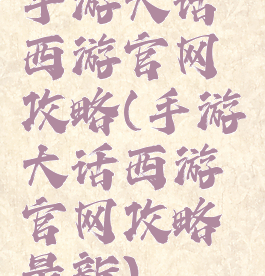 手游大话
西游官网
攻略(手游
大话西游
官网攻略
最新)